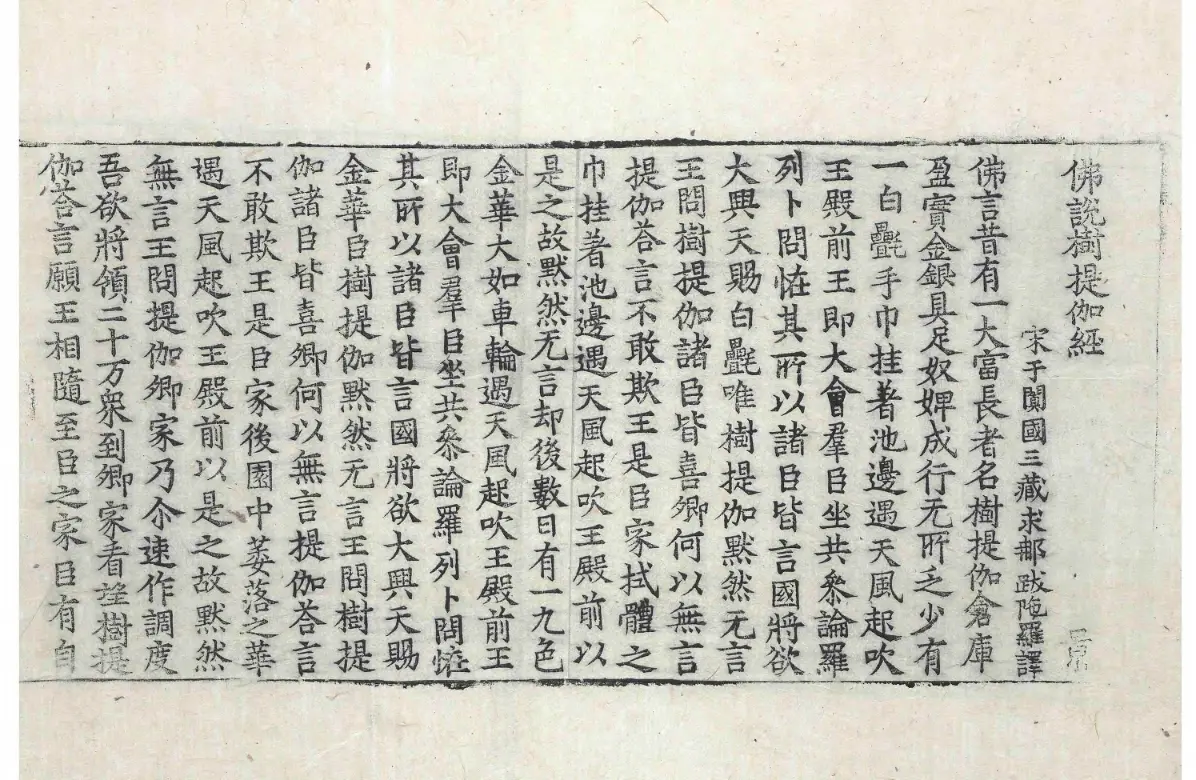 佛說樹提伽經
宋于闐國三藏求那跋陁羅譯
佛言昔有一大富長者名樹提伽倉庫
盈實金銀具足奴婢成行无所乏少有
一白㲲手巾挂著池邊遇天風起吹
王殿前王即大會羣臣坐共叅論羅
列卜問恠其所以諸臣皆言國將欲
大興天賜白㲲唯樹提伽默然无言
王問樹提伽諸臣皆喜卿何以無言
提伽荅言不敢欺王是臣家拭體之
巾挂著池邊遇天風起吹王殿前以
是之故默然无言却後數日有一九色
金華大如車輪遇天風起吹王殿前王
即大會羣臣坐共叅論羅列卜問恠
其所以諸臣皆言國將欲大興天賜
金華臣樹提伽默然无言王問樹提
伽諸臣皆喜卿何以無言提伽荅言
不敢欺王是臣家後園中萎落之華
遇天風起吹王殿前以是之故默然
無言王問提伽卿家乃尒速作調度
吾欲將領二十万衆到卿家看望樹提
伽荅言願王相隨至臣之家臣有自